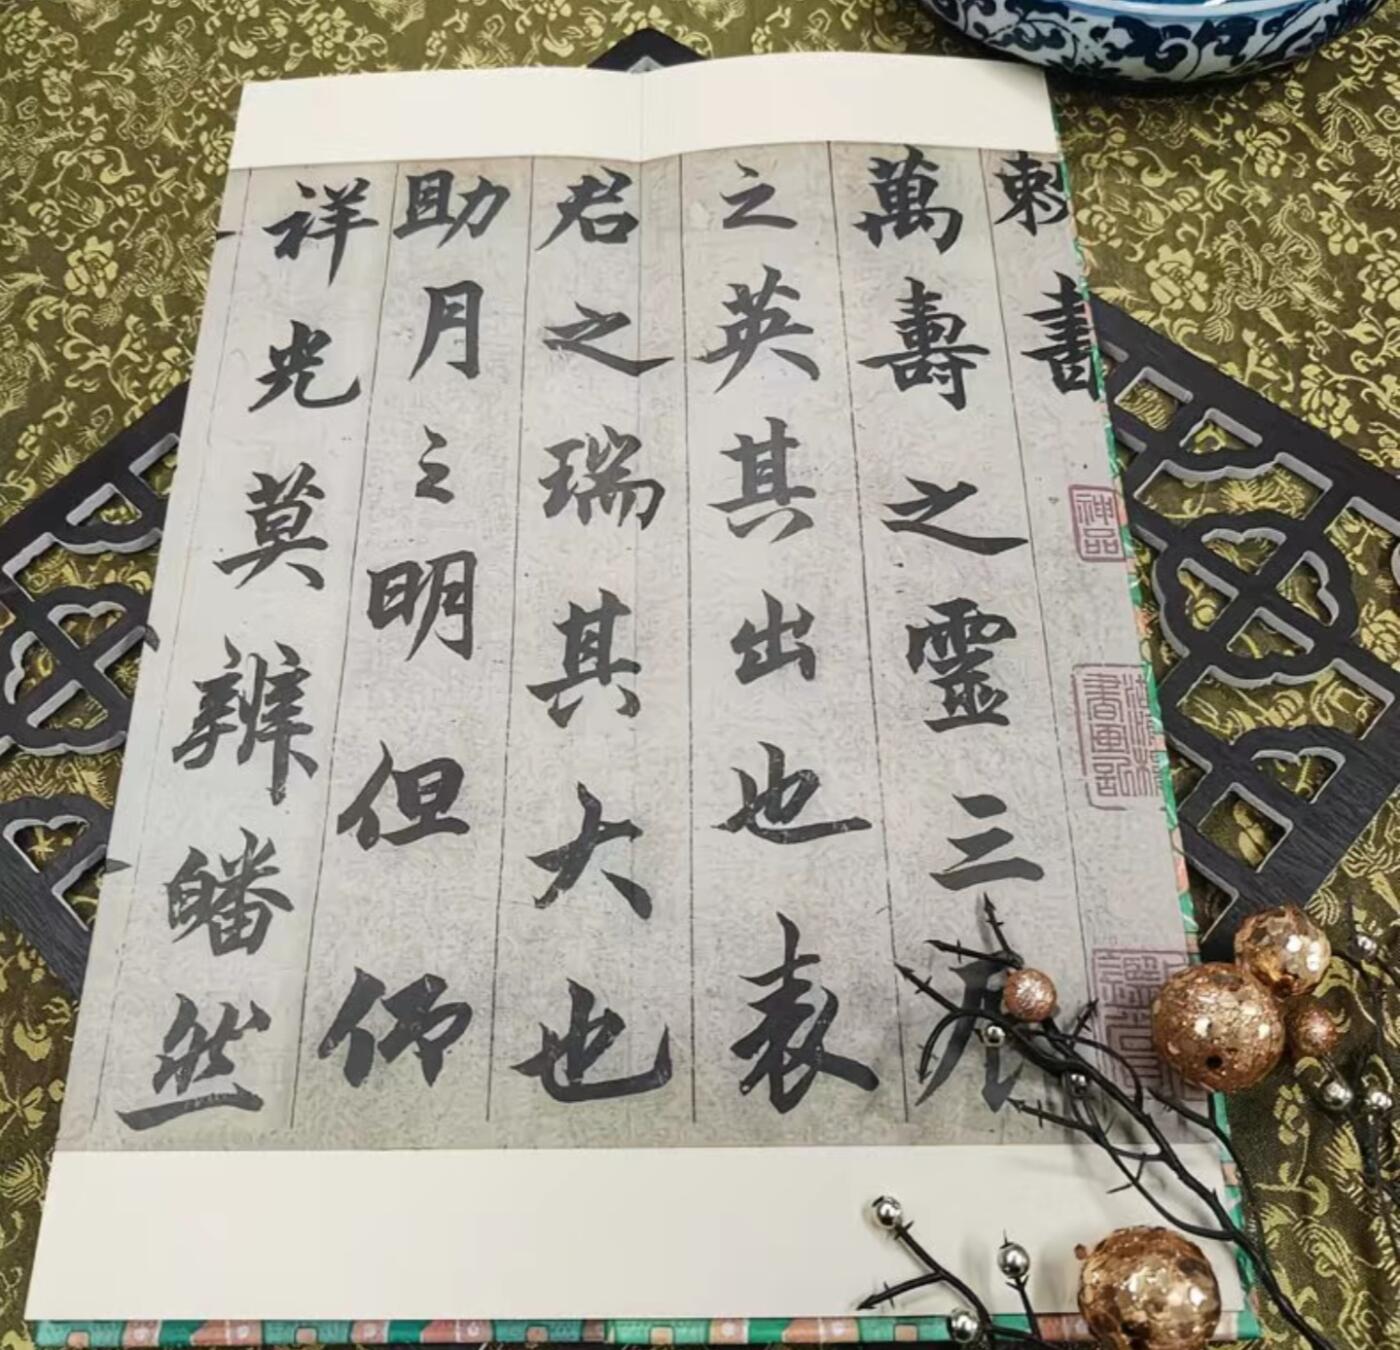 書
萬壽之靈三
之英其出也表
君之瑞其大也
助月之明但仰
祥光莫辨皤然
神品